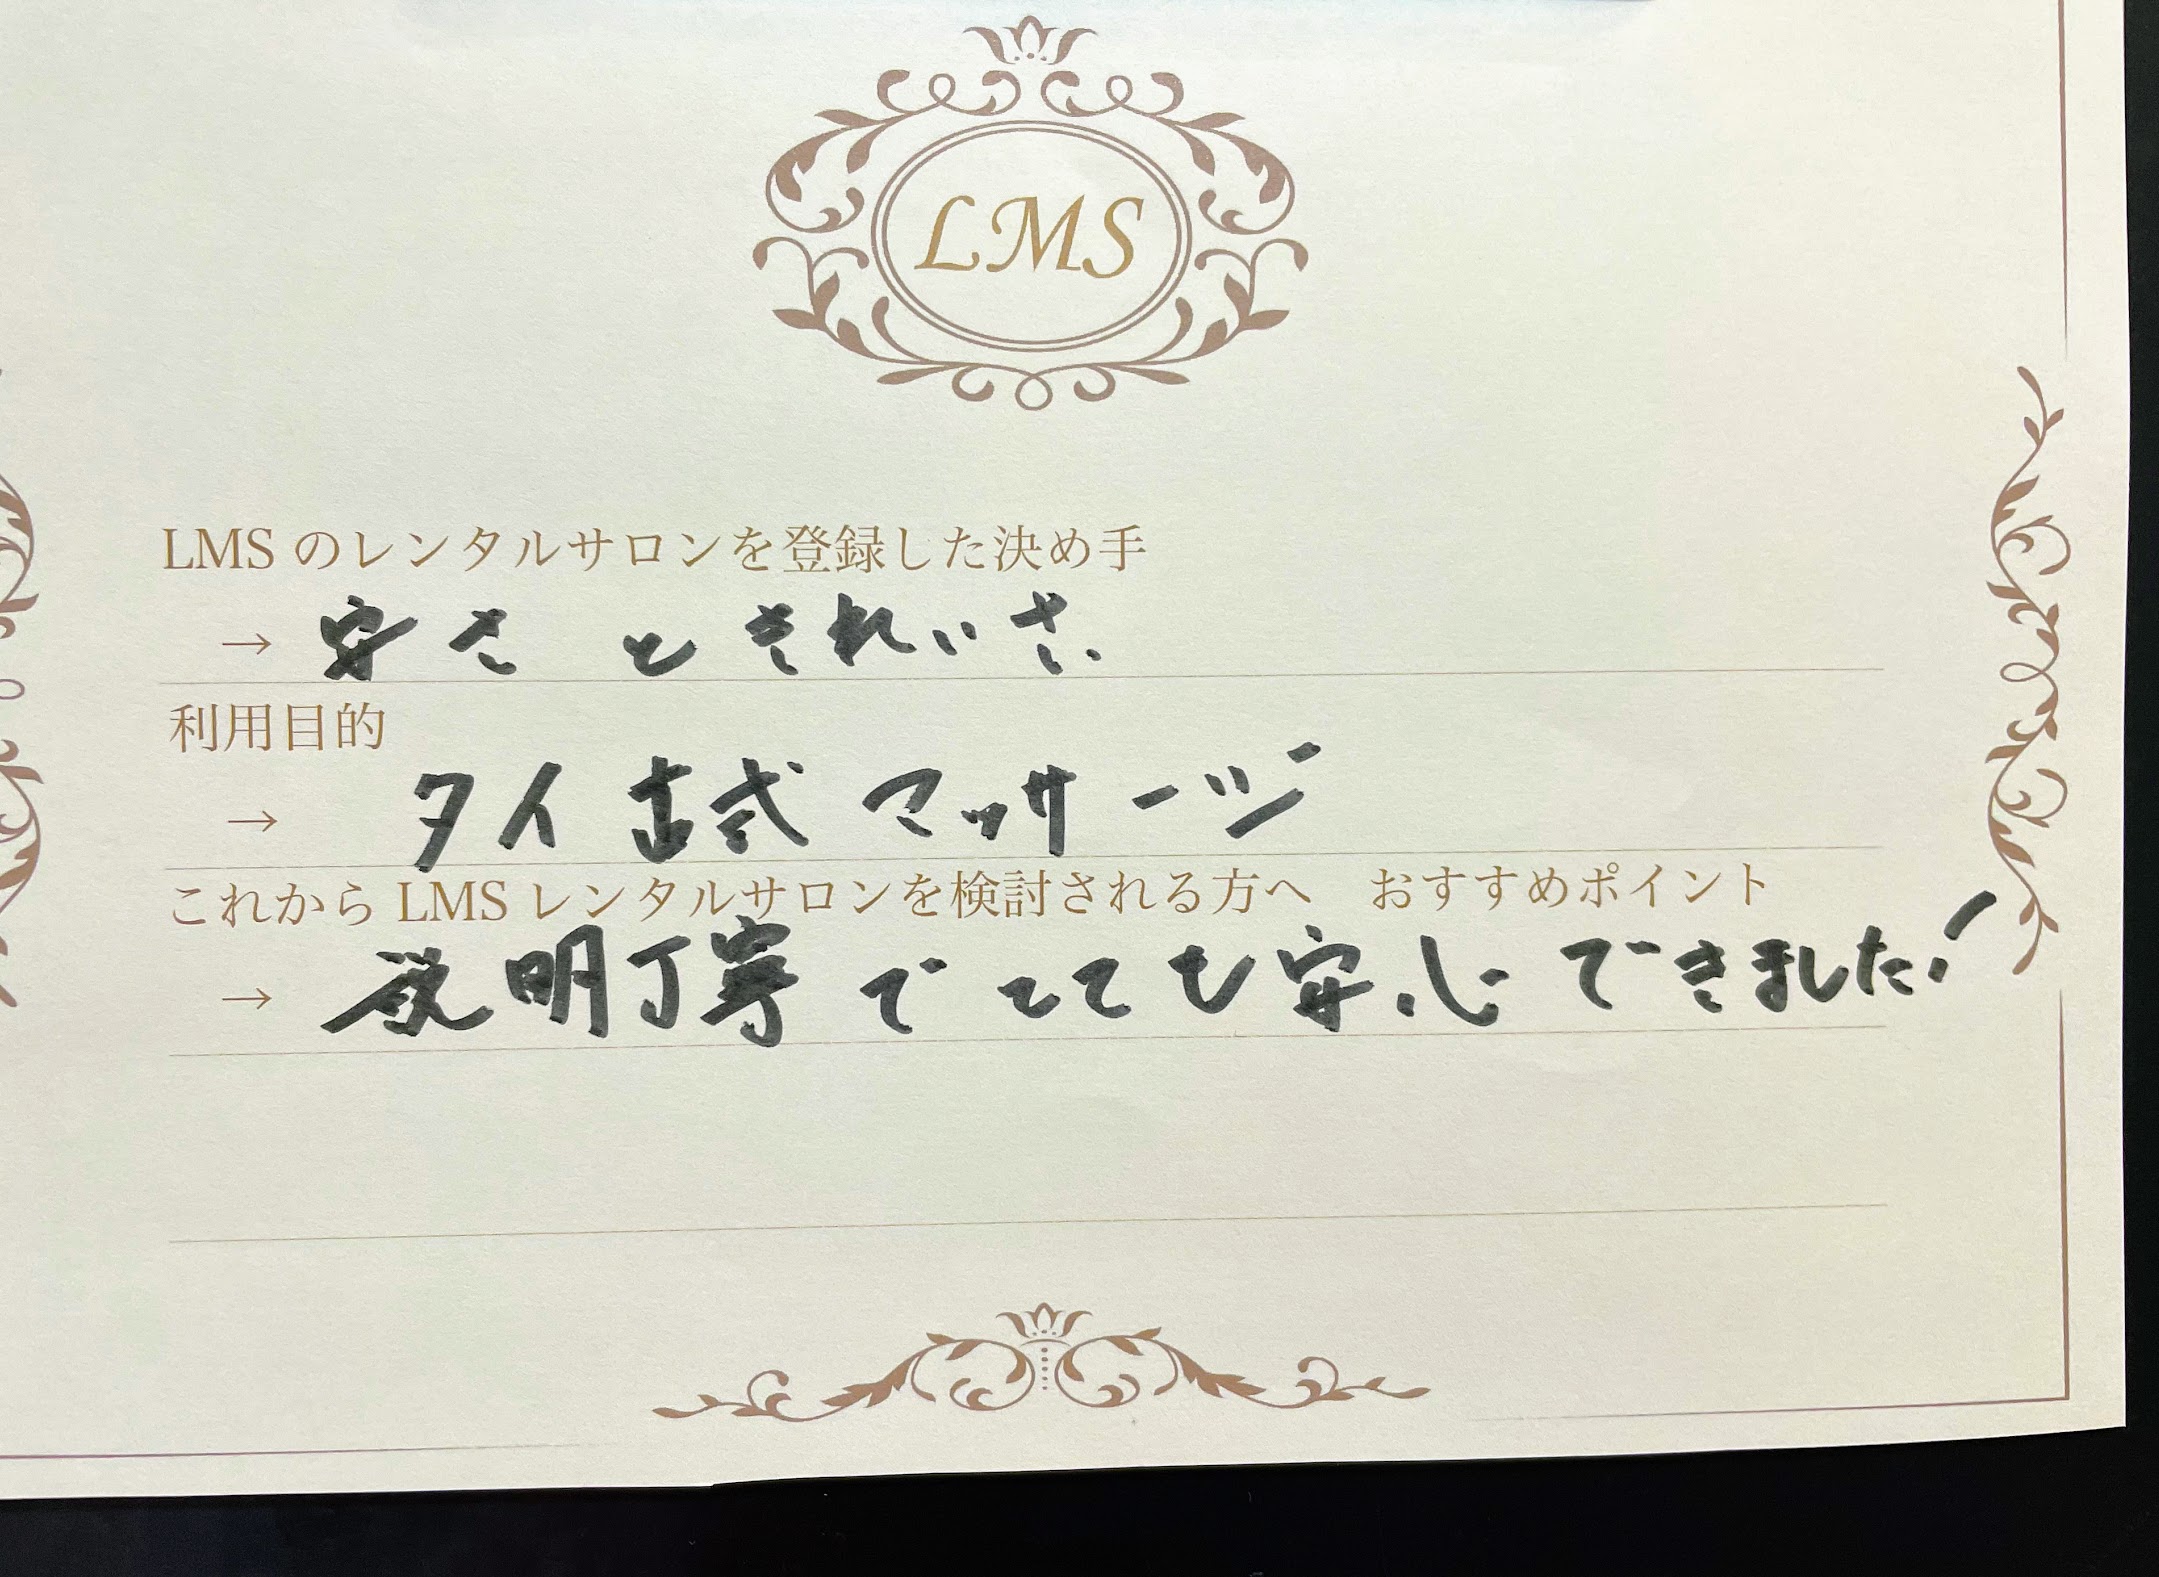 LMS
LMS のレンタルサロンを登録した決め手
→ 安さ と きれいさ.
利用目的
→ タイ古式 マッサージ
これから LMS レンタルサロンを検討される方へ　おすすめポイント
→ 説明丁寧で とても安心できました!